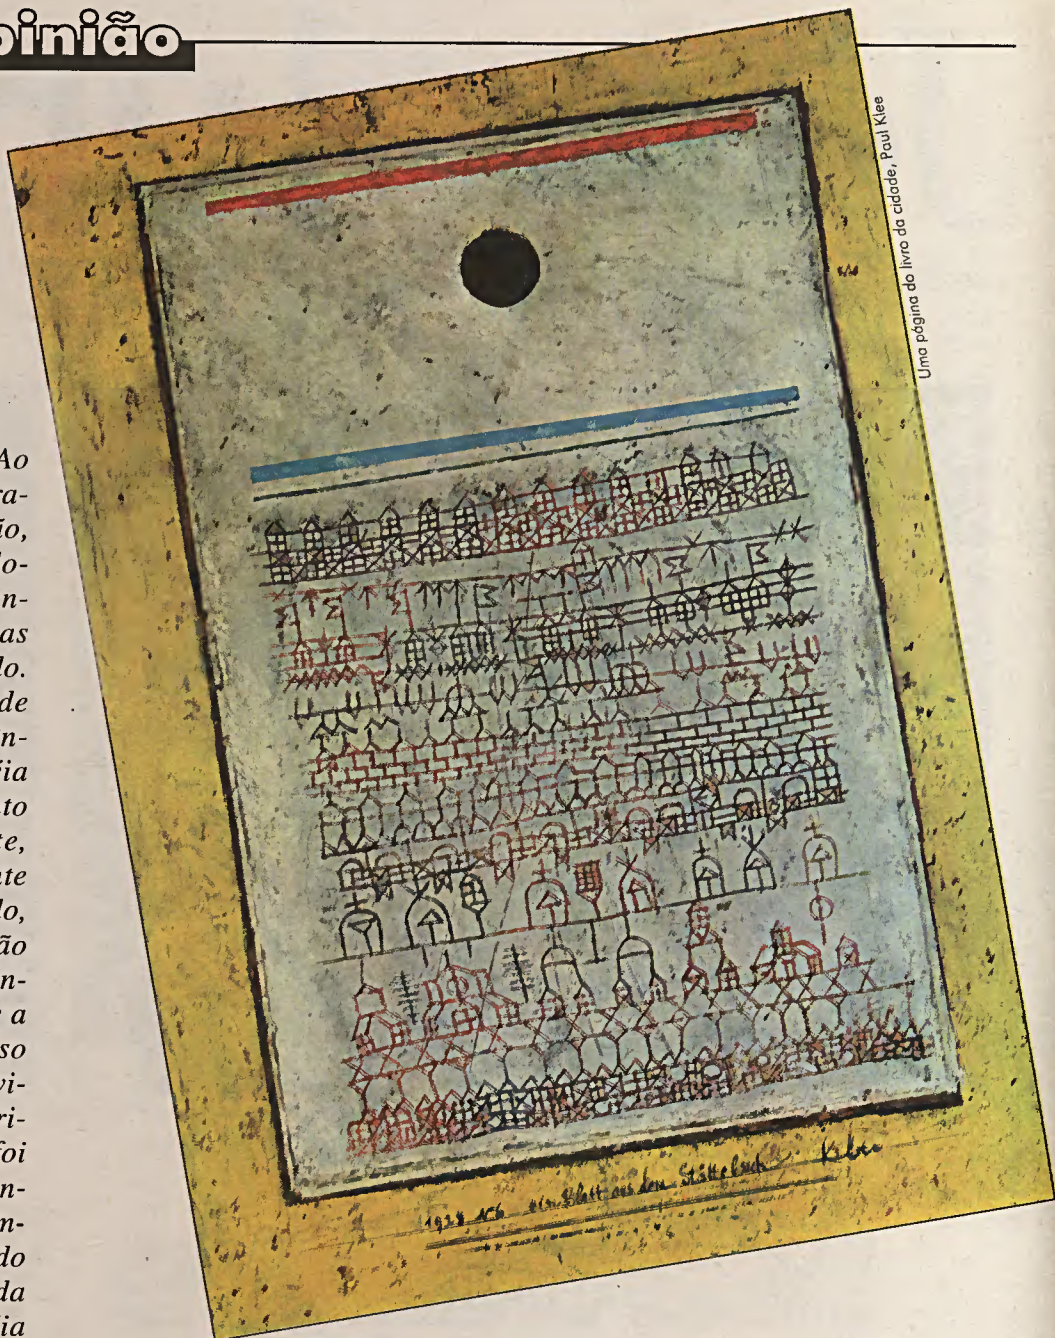 pinião
Uma página do livro da cidade, Paul Klee
Ao
ra-
ão,
do-
n-
as
lo.
de
in-
éia
nto
te,
nte
do,
ão
n-
r a
so
vi-
ri-
foi
n-
m-
do
da
éia
1928 N6 ein Blatt aus dem Städtebuch Klee